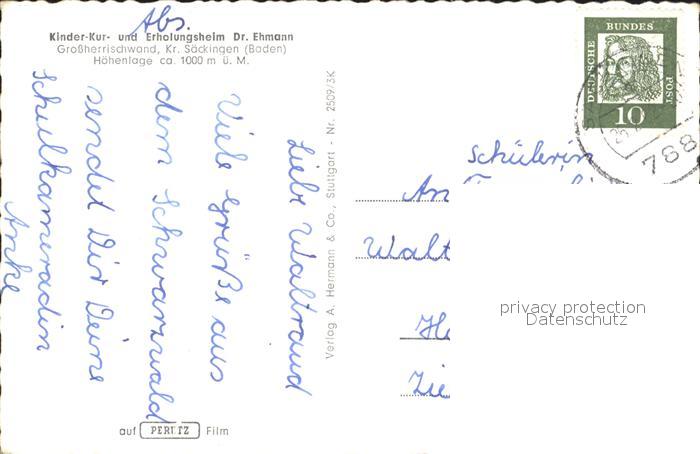 Abs.
Kinder-Kur- und Erholungsheim Dr. Ehmann
Großherrischwand, Kr. Säckingen (Baden)
Höhenlage ca. 1000 m ü. M.
Liebe Waltraud
Viele Grüße aus
dem Schwarzwald
sendet Dir Deine
Schulkameradin
Anke
Verlag A. Hermann & Co., Stuttgart - Nr. 2509/3K
auf PERUTZ Film
DEUTSCHE BUNDES POST
10
788
Schülerin
An
Walt
He
Zie
privacy protection
Datenschutz